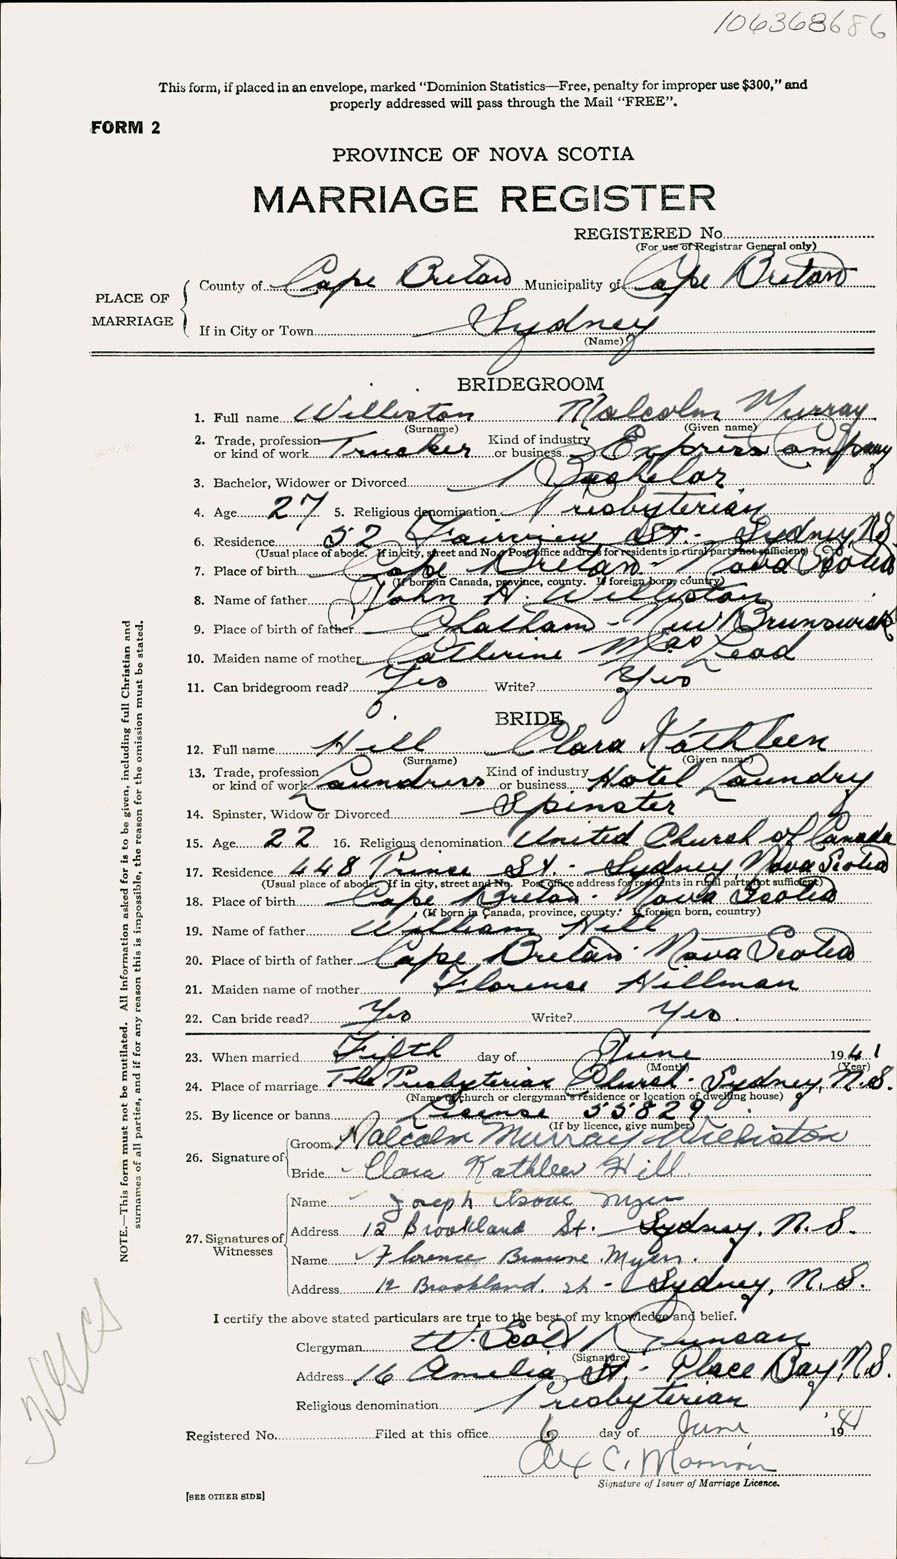 This form, if placed in an envelope, marked "Dominion Statistics—Free, penalty for improper use $300," and
properly addressed will pass through the Mail "FREE".
FORM 2
PROVINCE OF NOVA SCOTIA
MARRIAGE REGISTER
REGISTERED No.
(For use of Registrar General only)
PLACE OF MARRIAGE
County of Cape Breton Municipality of Cape Breton
If in City or Town Sydney
(Name)
BRIDEGROOM
1. Full name Williston Malcolm Murray
(Surname) (Given name)
2. Trade, profession or kind of work Trucker Kind of industry or business Express Company
3. Bachelor, Widower or Divorced Bachelor
4. Age 27 5. Religious denomination Presbyterian
6. Residence 52 Fairview St. - Sydney N.S.
(Usual place of abode. If in city, street and No. Post office address for residents in rural parts not sufficient)
7. Place of birth Cape Breton - Nova Scotia
(If born in Canada, province, county. If foreign born, country)
8. Name of father John A. Williston
9. Place of birth of father Chatham - New Brunswick
10. Maiden name of mother Catherine MacLeod
11. Can bridegroom read? Yes Write? Yes
BRIDE
12. Full name Hill Clara Kathleen
(Surname) (Given name)
13. Trade, profession or kind of work Laundress Kind of industry or business Hotel Laundry
14. Spinster, Widow or Divorced Spinster
15. Age 22 16. Religious denomination United Church of Canada
17. Residence 448 Prince St. - Sydney, Nova Scotia
(Usual place of abode. If in city, street and No. Post office address for residents in rural parts not sufficient)
18. Place of birth Cape Breton - Nova Scotia
(If born in Canada, province, county. If foreign born, country)
19. Name of father William Hill
20. Place of birth of father Cape Breton - Nova Scotia
21. Maiden name of mother Florence Hillman
22. Can bride read? Yes Write? Yes
23. When married Fifth day of June 1941
(Month) (Year)
24. Place of marriage The Presbyterian Church - Sydney, N.S.
(Name of church or clergyman's residence or location of dwelling house)
25. By licence or banns License 55829
(If by licence, give number)
26. Signature of
Groom Malcolm Murray Williston
Bride Clara Kathleen Hill
27. Signatures of Witnesses
Name Joseph Isaac Myers
Address 12 Brookland St. - Sydney, N.S.
Name Florence Browne Myers
Address 12 Brookland St - Sydney, N.S.
I certify the above stated particulars are true to the best of my knowledge and belief.
Clergyman W. Scott Duncan
(Signature)
Address 16 Amelia St. - Glace Bay, N.S.
Religious denomination Presbyterian
Registered No. Filed at this office 6 day of June 1941
Alex C.
Signature of Issuer of Marriage Licence.
[SEE OTHER SIDE]
NOTE.—This form must not be mutilated. All information asked for is to be given, including full Christian and
surnames of all parties, and if for any reason this is impossible, the reason for the omission must be stated.